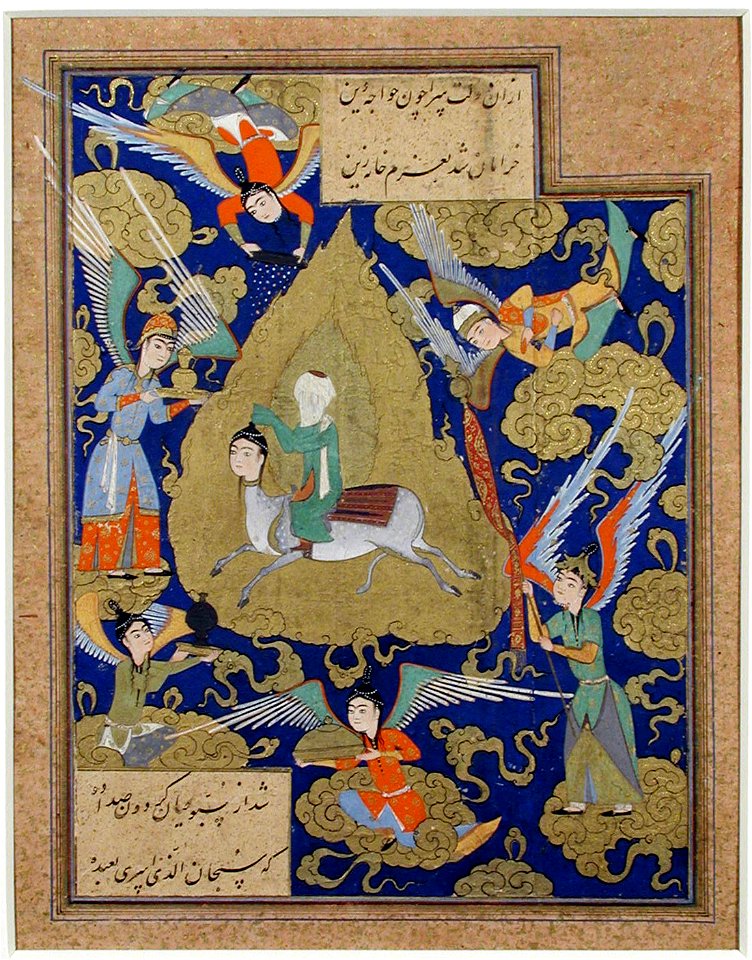 ازان دولت سرا چون خواجه دین
خرامان شد بعزم خانه زین
شد از سبوحیان گردون صدا ده
که سبحان الّذی اسری بعبده